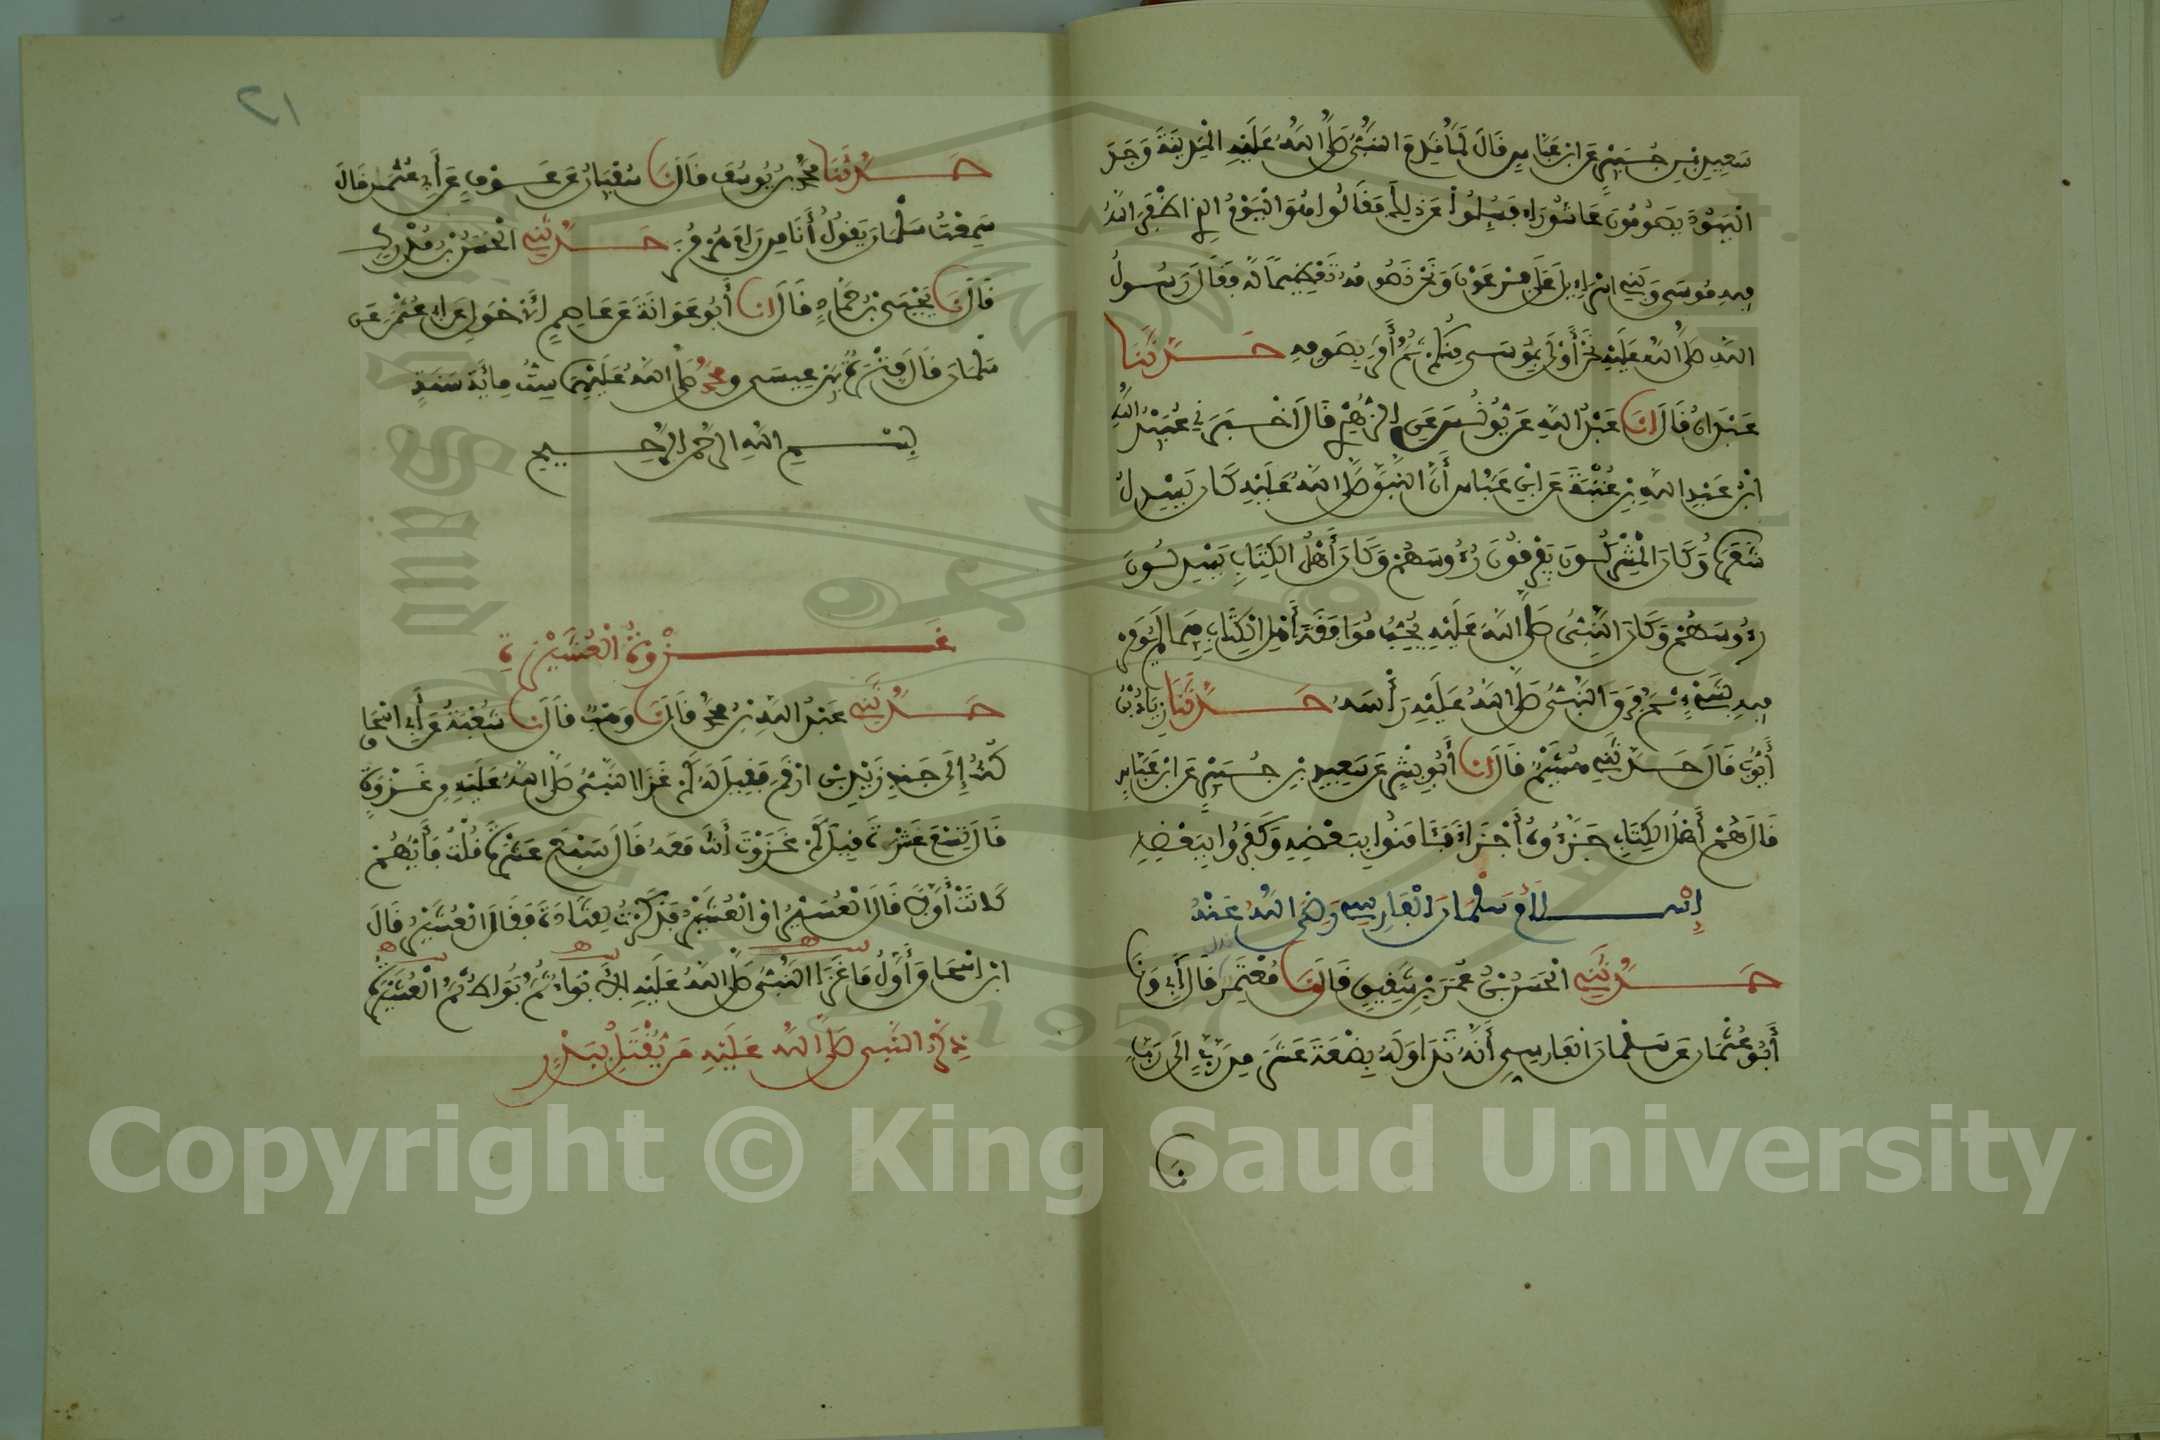 سعيد بن جبير عن ابن عباس قال لما قدم النبي صلى الله عليه المدينة وجد
اليهود يصومون عاشوراء فسئلوا عن ذلك فقالوا هو اليوم الذي اظفر الله
فيه موسى وبني اسراءيل على فرعون ونحن نصومه تعظيما له فقال رسول
الله صلى الله عليه نحن أولى بموسى منكم ثم أمر بصومه حدثنا
عبدان قال انا عبد الله عن يونس عن الزهري قال اخبرني عبيد الله
ابن عبد الله بن عتبة عن ابن عباس أن النبي صلى الله عليه كان يسدل
شعره وكان المشركون يفرقون رءوسهم وكان أهل الكتاب يسدلون
رءوسهم وكان النبي صلى الله عليه يحب موافقة أهل الكتاب فيما لم يومر
فيه بشيء ثم فرق النبي صلى الله عليه رأسه حدثنا زياد بن
أيوب قال حدثني هشيم قال انا أبو بشر عن سعيد بن جبير عن ابن عباس
قال هم أهل الكتاب جزءوه أجزاء فئامنوا ببعضه وكفروا ببعضه
إسلام سلمان الفارسي رضي الله عنه
حدثني الحسن بن عمر بن شقيق قال نا معتمر قال أبي ونا
أبو عثمان عن سلمان الفارسي أنه تداوله بضعة عشر من رب الى رب
نا
٢١
حدثنا محمد بن يوسف قال نا سفيان عن عوف عن أبي عثمن قال
سمعت سلمان يقول أنا من رام هرمز حدثني الحسن بن مدرك
قال نا يحيى بن حماد قال انا أبو عوانة عن عاصم الأحول عن ابي عثمن عن
سلمان قال فترة بين عيسى ومحمد صلى الله عليهما ست مائة سنة
بسم الله الرحمن الرحيم
غزوة العشيرة
حدثني عبد الله بن محمد قال نا وهب قال نا شعبة عن أبي اسحاق
كنت إلى جنب زيد بن ارقم فقيل له كم غزا النبي صلى الله عليه من غزوة
قال تسع عشرة قيل كم غزوت أنت معه قال سبع عشرة قلت فأيهم
كانت أول قال العسير او العشير فذكرت لقتادة فقال العشير قال
ابن اسحاق وأول ما غزا النبي صلى الله عليه الأبواء ثم بواط ثم العشيرة
ذكر النبي صلى الله عليه من يقتل ببدر
Copyright © King Saud University
1957